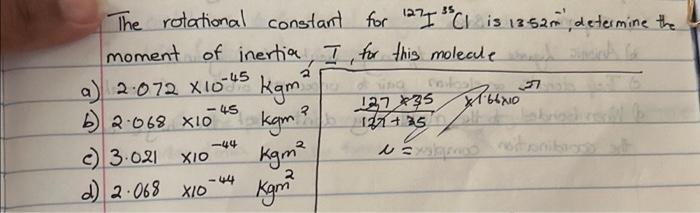 The rotational constant for ¹²⁷I ³⁵Cl is 13.52m⁻¹, determine the
moment of inertia, I, for this molecule
a) 2.072 x10⁻⁴⁵ Kgm²
b) 2.068 x10⁻⁴⁵ kgm²
c) 3.021 x10⁻⁴⁴ Kgm²
d) 2.068 x10⁻⁴⁴ Kgm²
127 x 35 x1.66x10⁻²⁷
127 + 35